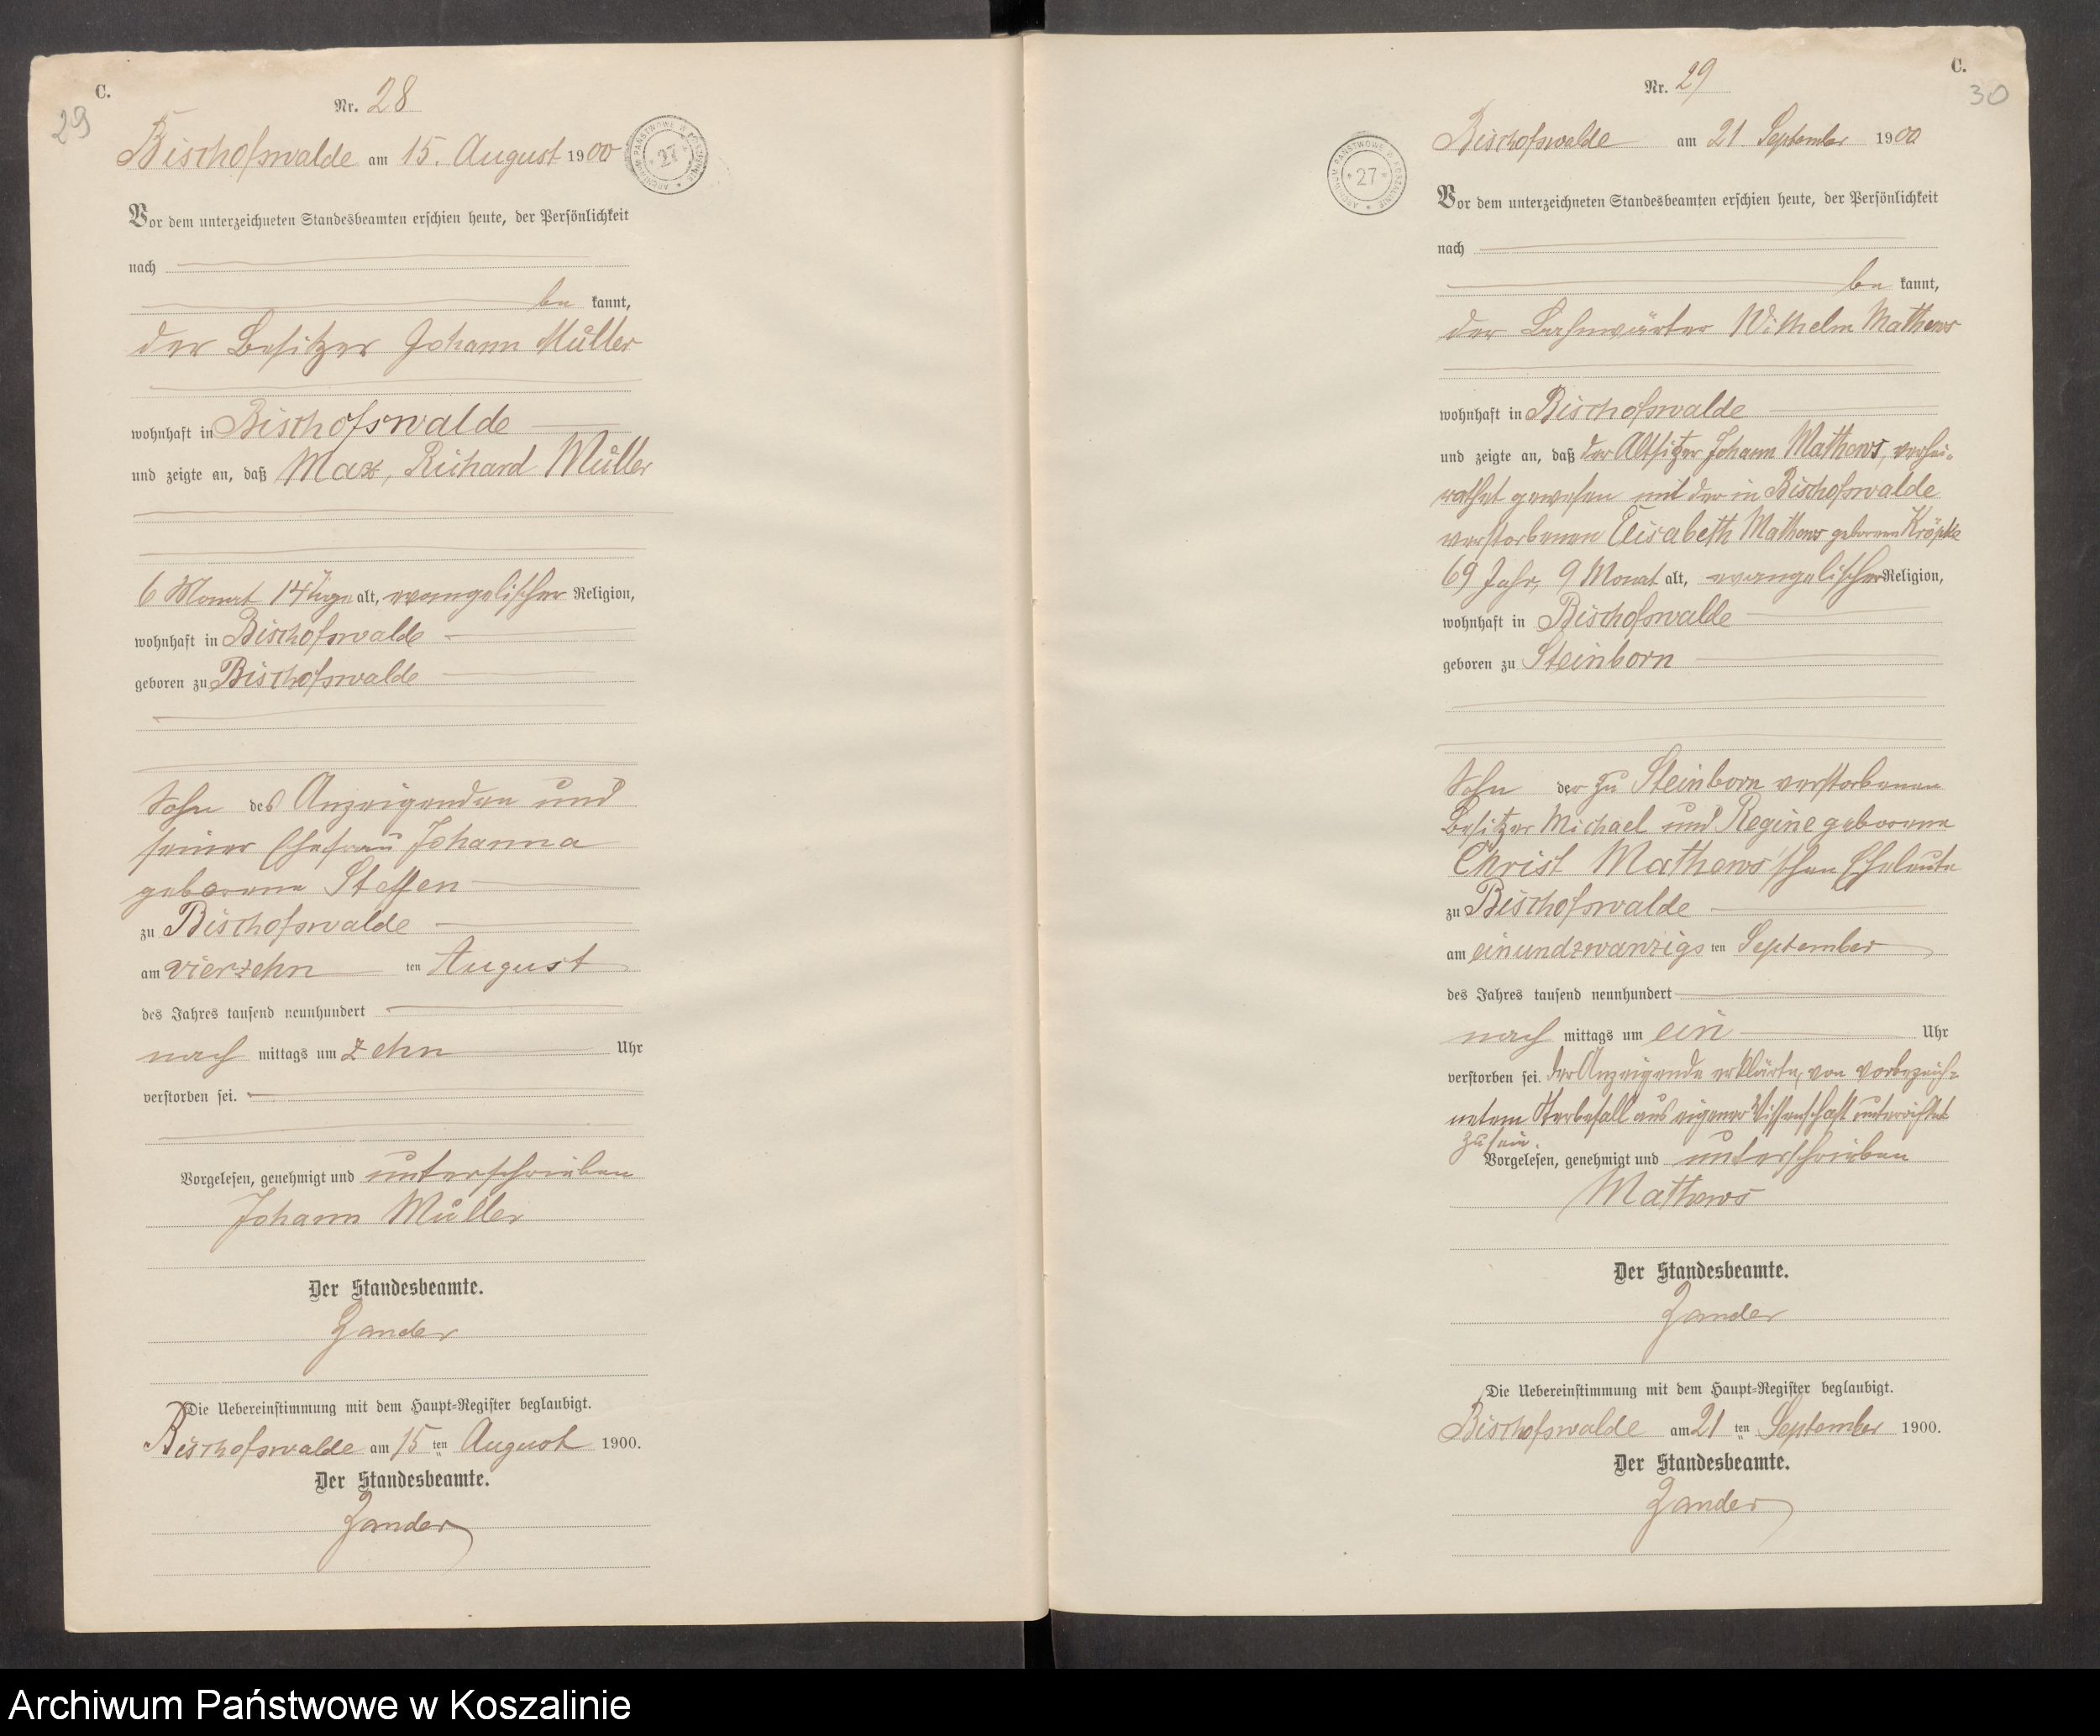 C.
29
Nr. 28
Bischofswalde am 15. August 1900
ARCHIWUM PAŃSTWOWE W KOSZALINIE
* 27 *
Vor dem unterzeichneten Standesbeamten erschien heute, der Persönlichkeit
nach
be kannt,
der Besitzer Johann Müller
wohnhaft in Bischofswalde
und zeigte an, daß Max, Richard Müller
6 Monat 14 Tage alt, evangelischer Religion,
wohnhaft in Bischofswalde
geboren zu Bischofswalde
Sohn des Anzeigenden und
seiner Ehefrau Johanna
geborene Steffen
zu Bischofswalde
am vierzehn ten August
des Jahres tausend neunhundert
nach mittags um zehn Uhr
verstorben sei.
Vorgelesen, genehmigt und unterschrieben
Johann Müller
Der Standesbeamte.
Zander
Die Uebereinstimmung mit dem Haupt-Register beglaubigt.
Bischofswalde am 15 ten August 1900.
Der Standesbeamte.
Zander
C.
30
Nr. 29
Bischofswalde am 21 September 1900
ARCHIWUM PAŃSTWOWE W KOSZALINIE
* 27 *
Vor dem unterzeichneten Standesbeamten erschien heute, der Persönlichkeit
nach
be kannt,
der Bahnwärter Wilhelm Mathews
wohnhaft in Bischofswalde
und zeigte an, daß der Altsitzer Johann Mathews, verhei-
rathet gewesen mit der in Bischofswalde
verstorbenen Elisabeth Mathews geborenen Kröpke
69 Jahr, 9 Monat alt, evangelischer Religion,
wohnhaft in Bischofswalde
geboren zu Steinborn
Sohn der zu Steinborn verstorbenen
Besitzer Michael und Regine geborene
Christ Mathews'schen Eheleute
zu Bischofswalde
am einundzwanzigs ten September
des Jahres tausend neunhundert
nach mittags um ein Uhr
verstorben sei. Der Anzeigende erklärte, von vorbezeich-
netem Sterbefall aus eigener Wissenschaft unterrichtet
zu sein.
Vorgelesen, genehmigt und unterschrieben
Mathews
Der Standesbeamte.
Zander
Die Uebereinstimmung mit dem Haupt-Register beglaubigt.
Bischofswalde am 21 ten September 1900.
Der Standesbeamte.
Zander
Archiwum Państwowe w Koszalinie